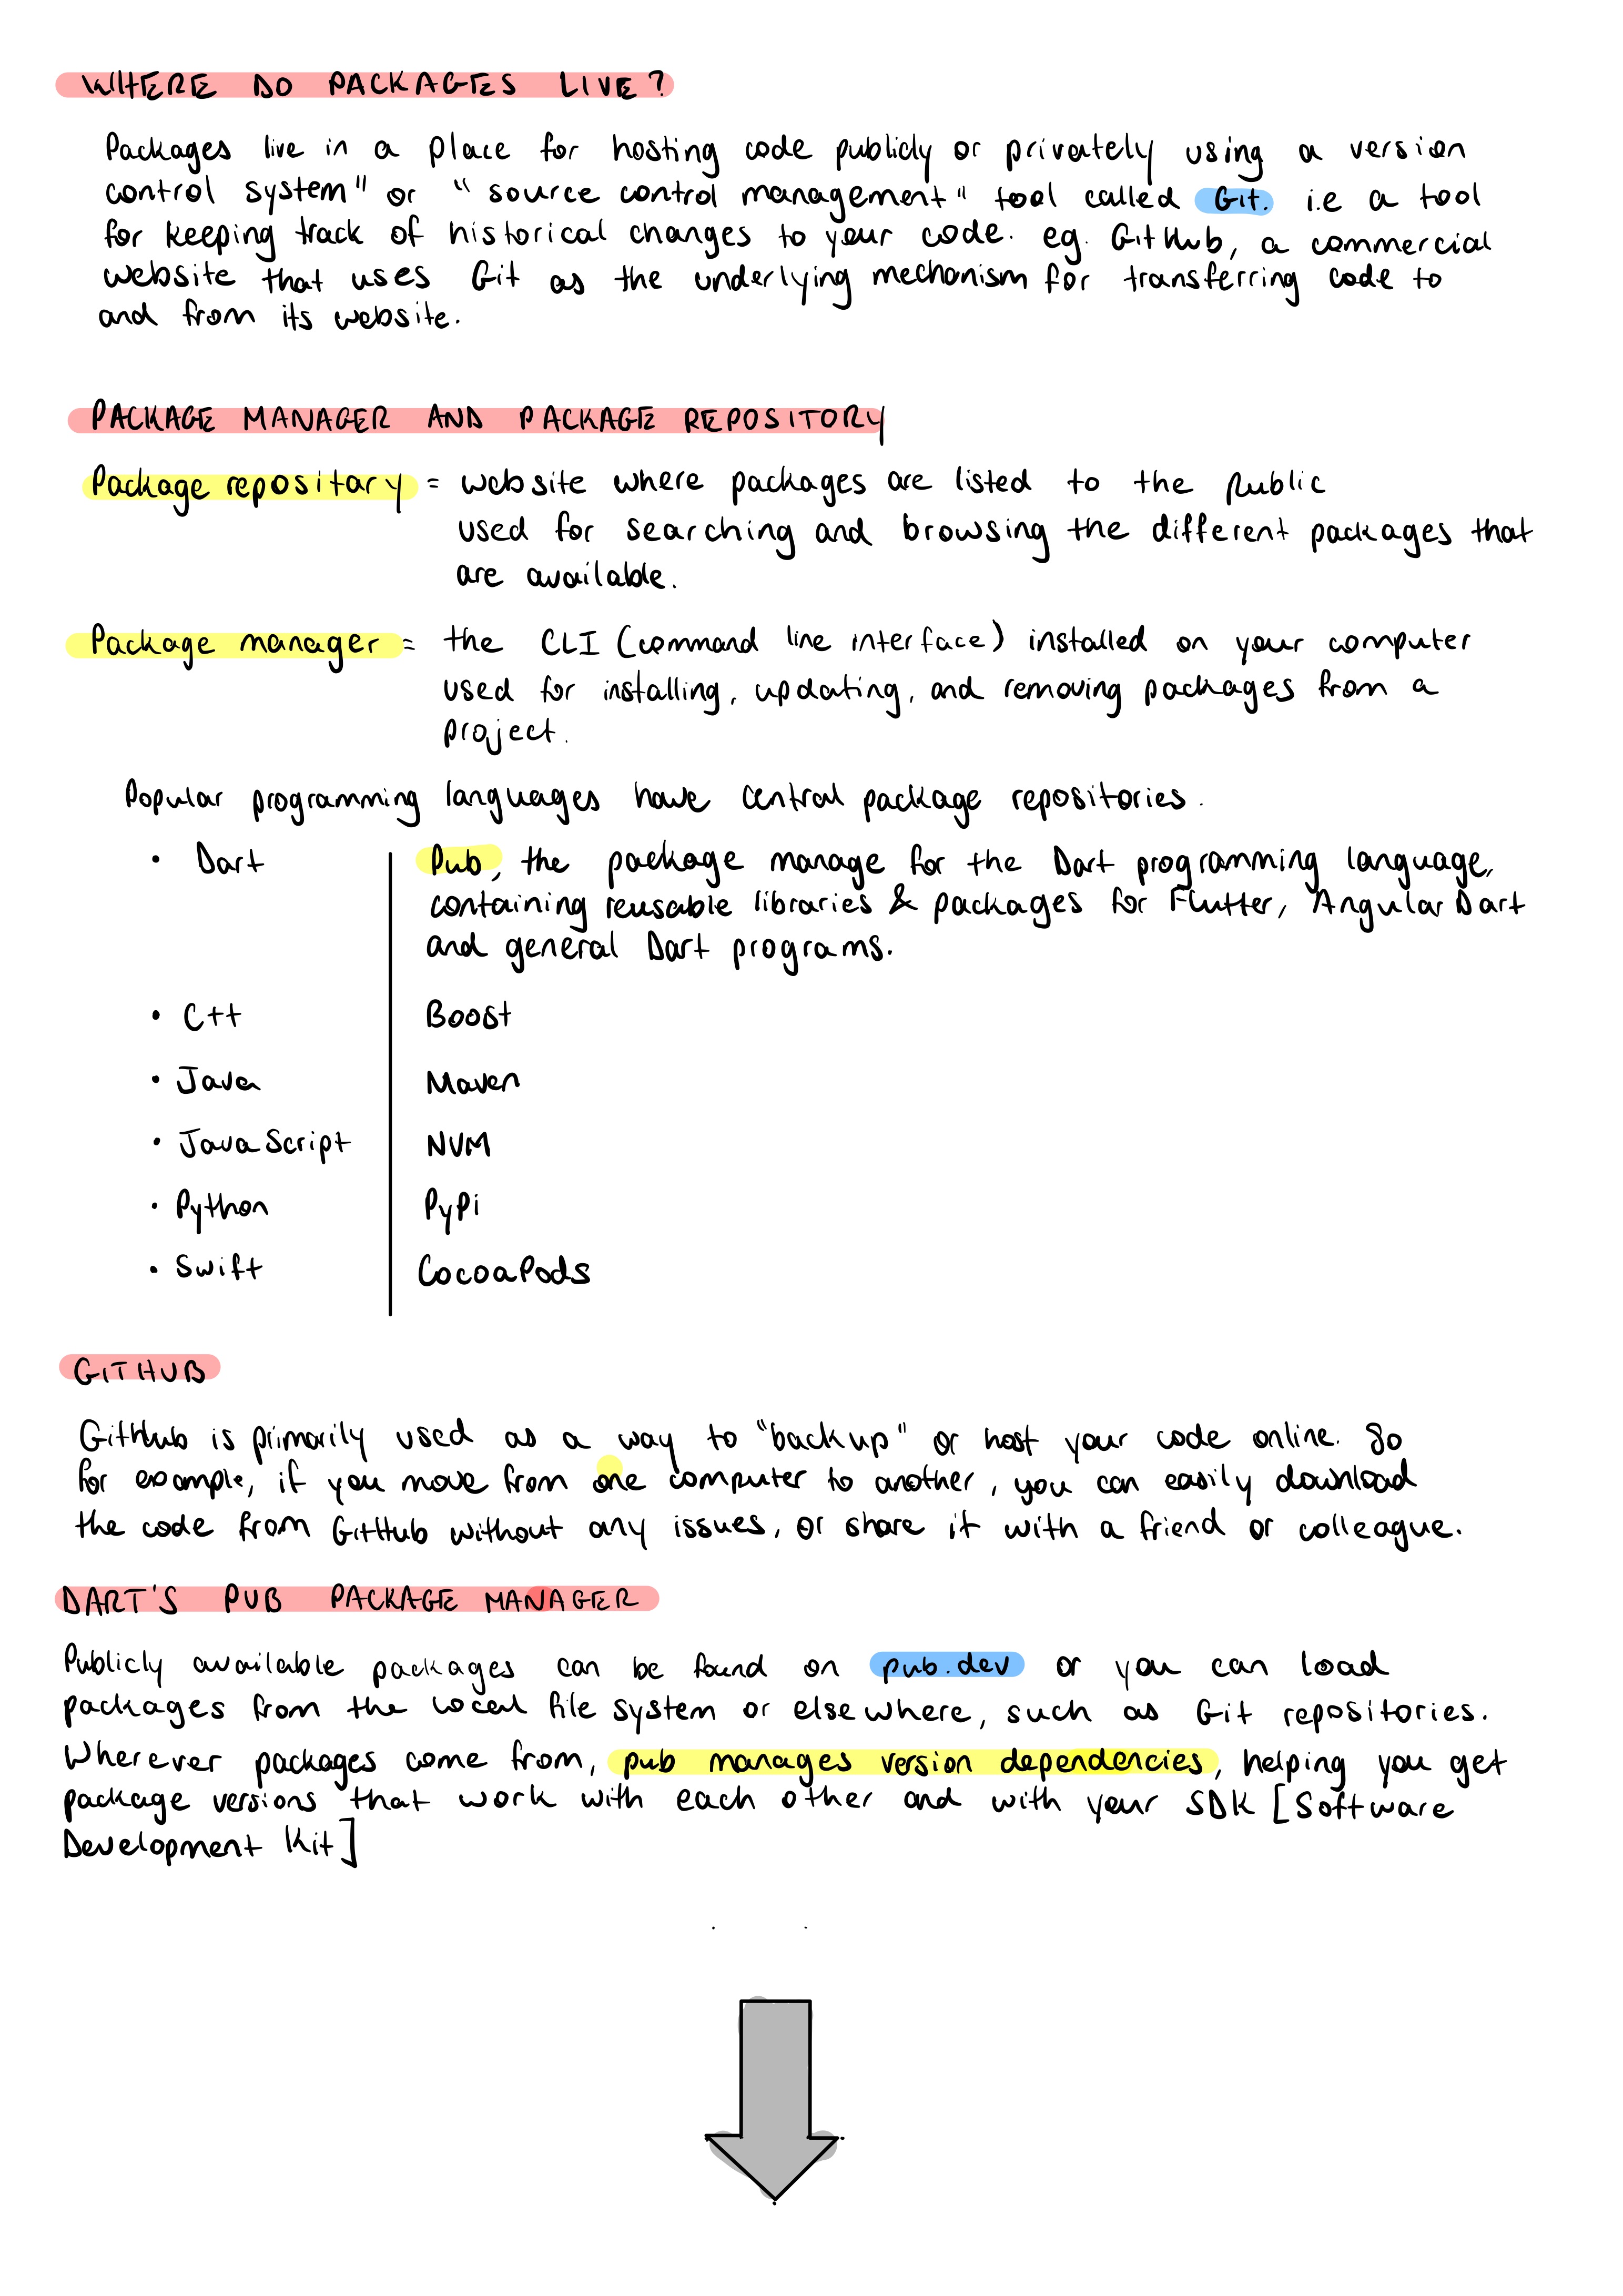 WHERE DO PACKAGES LIVE?
Packages live in a place for hosting code publicly or privately using a version
control system" or "source control management" tool called Git. i.e a tool
for keeping track of historical changes to your code. eg. GitHub, a commercial
website that uses Git as the underlying mechanism for transferring code to
and from its website.
PACKAGE MANAGER AND PACKAGE REPOSITORY
Package repositary = website where packages are listed to the public
used for searching and browsing the different packages that
are available.
Package manager = the CLI (command line interface) installed on your computer
used for installing, updating, and removing packages from a
project.
Popular programming languages have central package repositories.
• Dart Pub, the package manage for the Dart programming language,
containing reusable libraries & packages for Flutter, Angular Dart
and general Dart programs.
• C++ Boost
• Java Maven
• JavaScript NVM
• Python PyPi
• Swift CocoaPods
GITHUB
GitHub is primarily used as a way to "backup" or host your code online. So
for example, if you move from one computer to another, you can easily download
the code from GitHub without any issues, or share it with a friend or colleague.
DART'S PUB PACKAGE MANAGER
Publicly available packages can be found on pub.dev or you can load
packages from the local file system or elsewhere, such as Git repositories.
Wherever packages come from, pub manages version dependencies, helping you get
package versions that work with each other and with your SDK [Software
Development Kit]